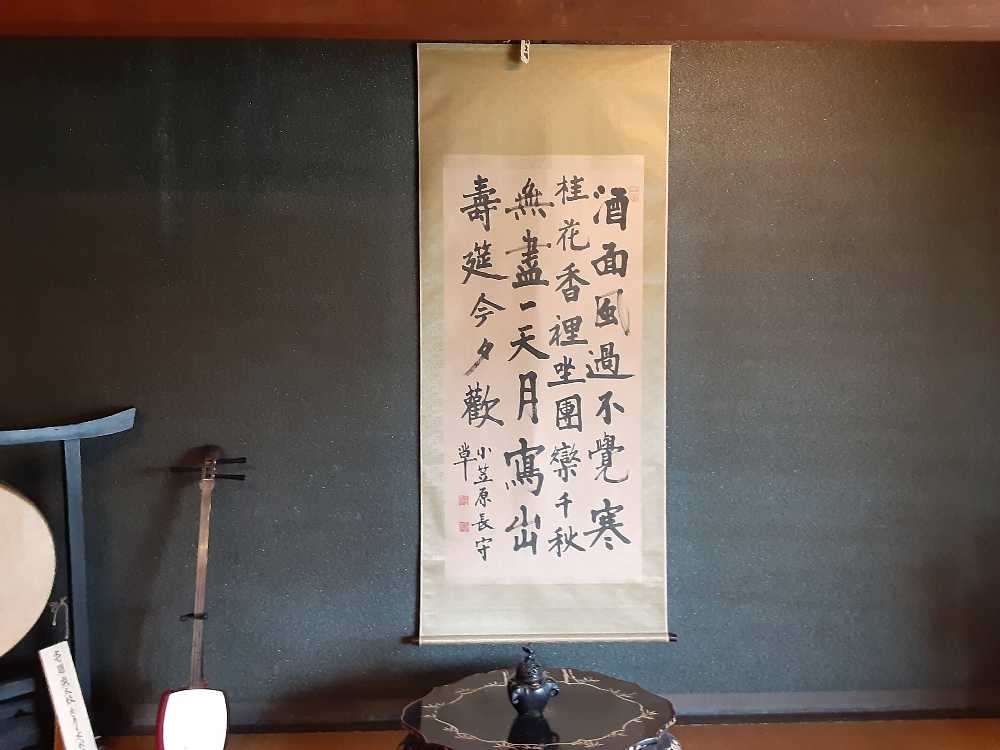 酒面風過不覺寒
桂花香裡坐團欒千秋
無盡一天月寫出
壽筵今夕歡
小笠原長守
草